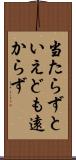 当たらずと
いえども遠
からず